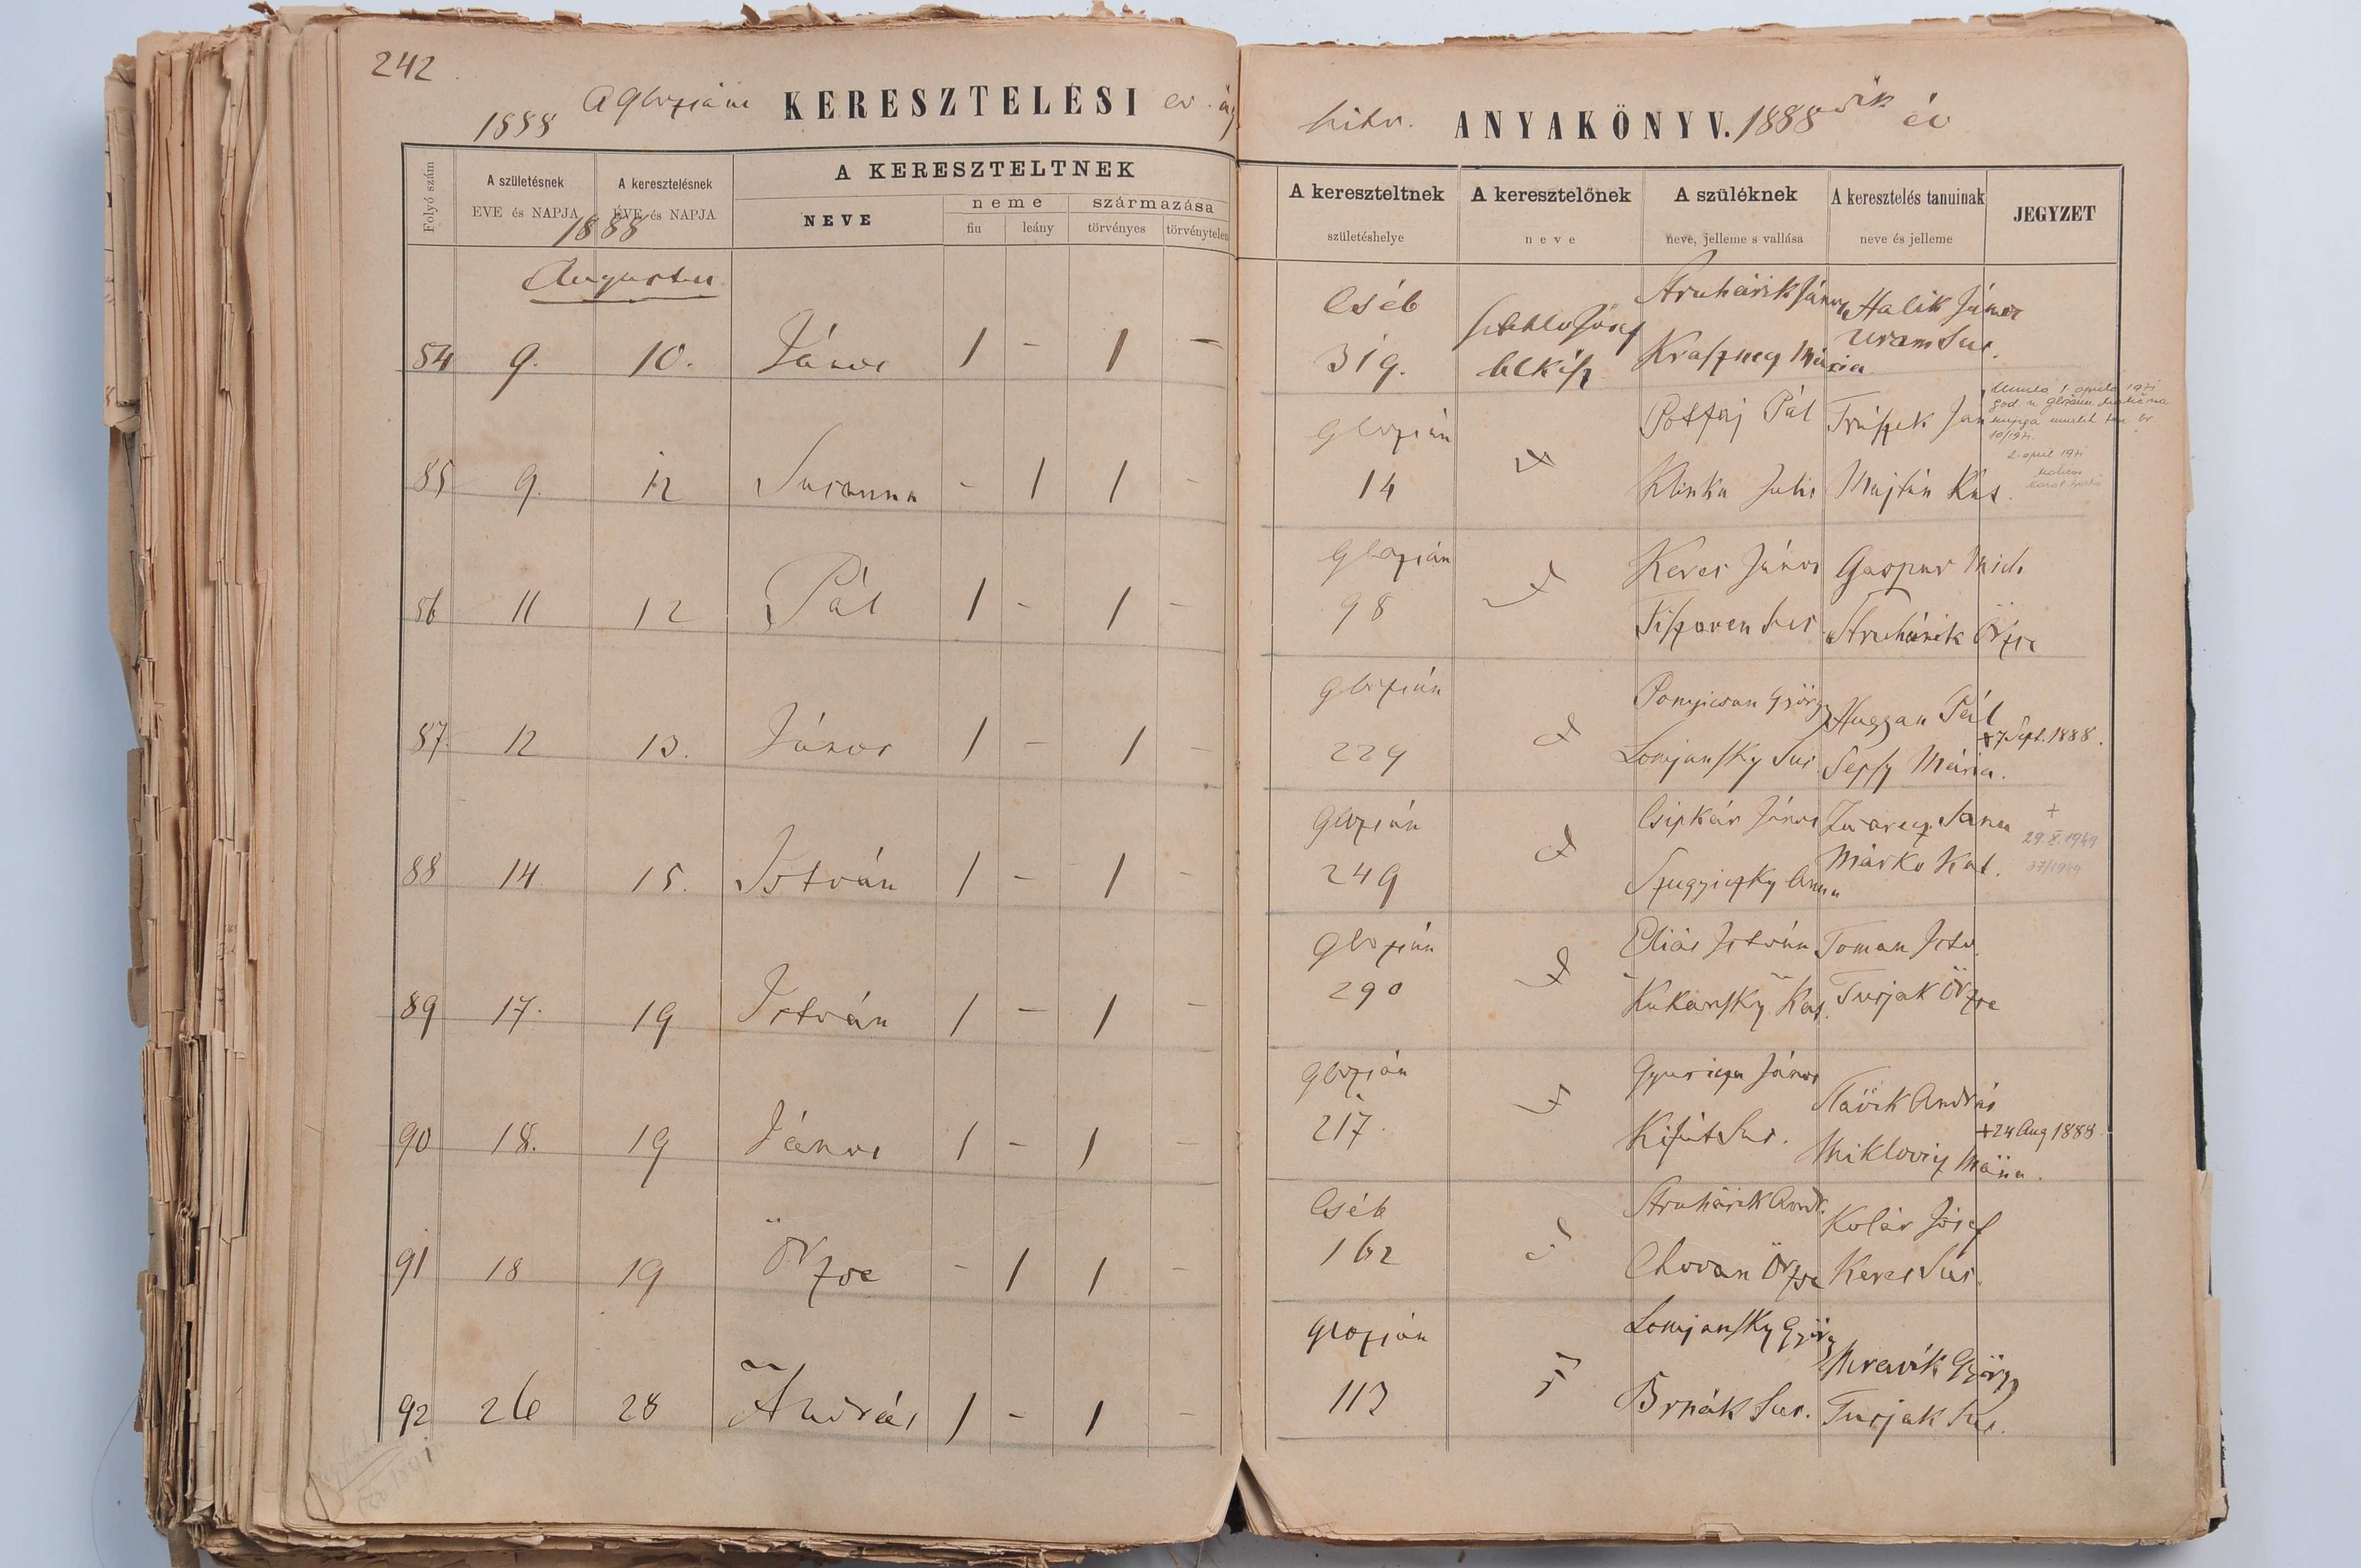 242
1888 A glozsáni KERESZTELÉSI ev. ág.
hitv. ANYAKÖNYV. 1888 dik év
Folyó szám
A születésnek
ÉVE és NAPJA
A keresztelésnek
ÉVE és NAPJA
1888
A KERESZTELTNEK
NEVE
neme
származása
fiu
leány
törvényes
törvénytelen
A kereszteltnek
születéshelye
A keresztelőnek
neve
A szüléknek
neve, jelleme s vallása
A keresztelés tanuinak
neve és jelleme
JEGYZET
Augustus
Cséb Struhárik János Halik János
84 9. 10. János 1 - 1 - 319. József lelkész Kraszney Mária Uram Sus.
Glozsán Potfaj Pál
85 9. 12 Susanna - 1 1 - 14 Klinka Julis Majtán Kat.
10/1971.
2. april 1971
Glozsán Keres János Gaspar Mich.
86 11 12 Pál 1 - 1 - 98 Sus. Struhárik Örzse
Glozsán Ponyicsan György Huggan Pál
87. 12 13. János 1 - 1 - 229 Lomjansky Sus. Sepsy Mária. +7 Sept. 1888.
Glozsán Csipkár János +
29.X.1949
88 14 15. István 1 - 1 - 249 Anna Márko Kat. 37/1949
Glozsán Eliás István Toman Istv.
89 17. 19 István 1 - 1 - 290 Kukansky Kat. Turjak Örzse
Glozsán János Slávik András
90 18. 19 János 1 - 1 - 217. Sus. Miklovicz Mária. +24 Aug 1888.
Cséb Struhárik Andr. Kolár József
91 18 19 Örzse - 1 1 - 162 Chovan Örzse Keres Sus.
Glozsán Lomjansky György Mravík György
92 26 28 András 1 - 1 - 113 Brnák Sus. Turjak Sus.